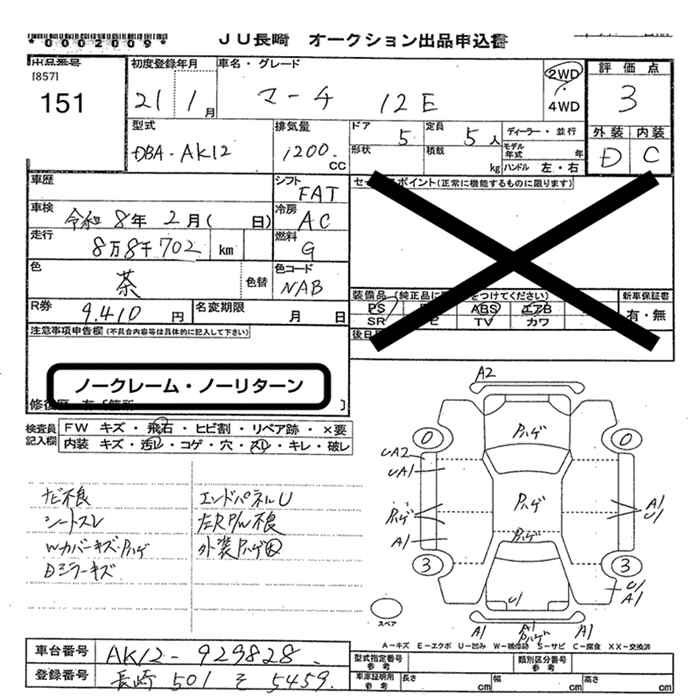 *0002009*
JU長崎 オークション出品申込書
出品番号
[857]
151
初度登録年月
21 1月
車名・グレード
マーチ 12E
2WD
・
4WD
評価点
3
外装 内装
D C
型式
DBA-AK12
排気量
1200 CC
ドア
5
定員
5人
形状
積載
kg
ディーラー・並行
モデル年式 年
ハンドル 左・右
車歴
シフト
FAT
車検
令和8年2月( 日)
冷房
AC
走行
8万8千702 km
燃料
G
色
茶
色替
色コード
NAB
R券
9,410円
名変期限
月 日
セールスポイント(正常に機能するものに限ります)
装備品
PS
ABS
エアB
SR
TV
カワ
新車保証書
有・無
注意事項申告欄(不具合内容等は具体的に記入して下さい)
ノークレーム・ノーリターン
検査員記入欄
FW キズ・飛石・ヒビ割・リペア跡・×要
内装 キズ・汚レ・コゲ・穴・スレ・キレ・破レ
ナビ不良
シートスレ
WカバーキズPハゲ
Dミラーキズ
エンドパネルU
左RP/W不良
外装Pハゲ大
A2
0 0
Pハゲ
UA2
UA1
Pハゲ
Pハゲ
A1
U1
A1
Pハゲ
3 3
U1
U1
A1
A1
A1
Pハゲ
A1
スペア
A-キズ E-エクボ U-凹み W-補修跡 S-サビ C-腐食 XX-交換済
車台番号
AK12-929828
登録番号
長崎 501 そ 5459
型式指定番号
参考
類別区分番号
参考
車庫証明用
参考
長さ cm
幅 cm
高さ cm